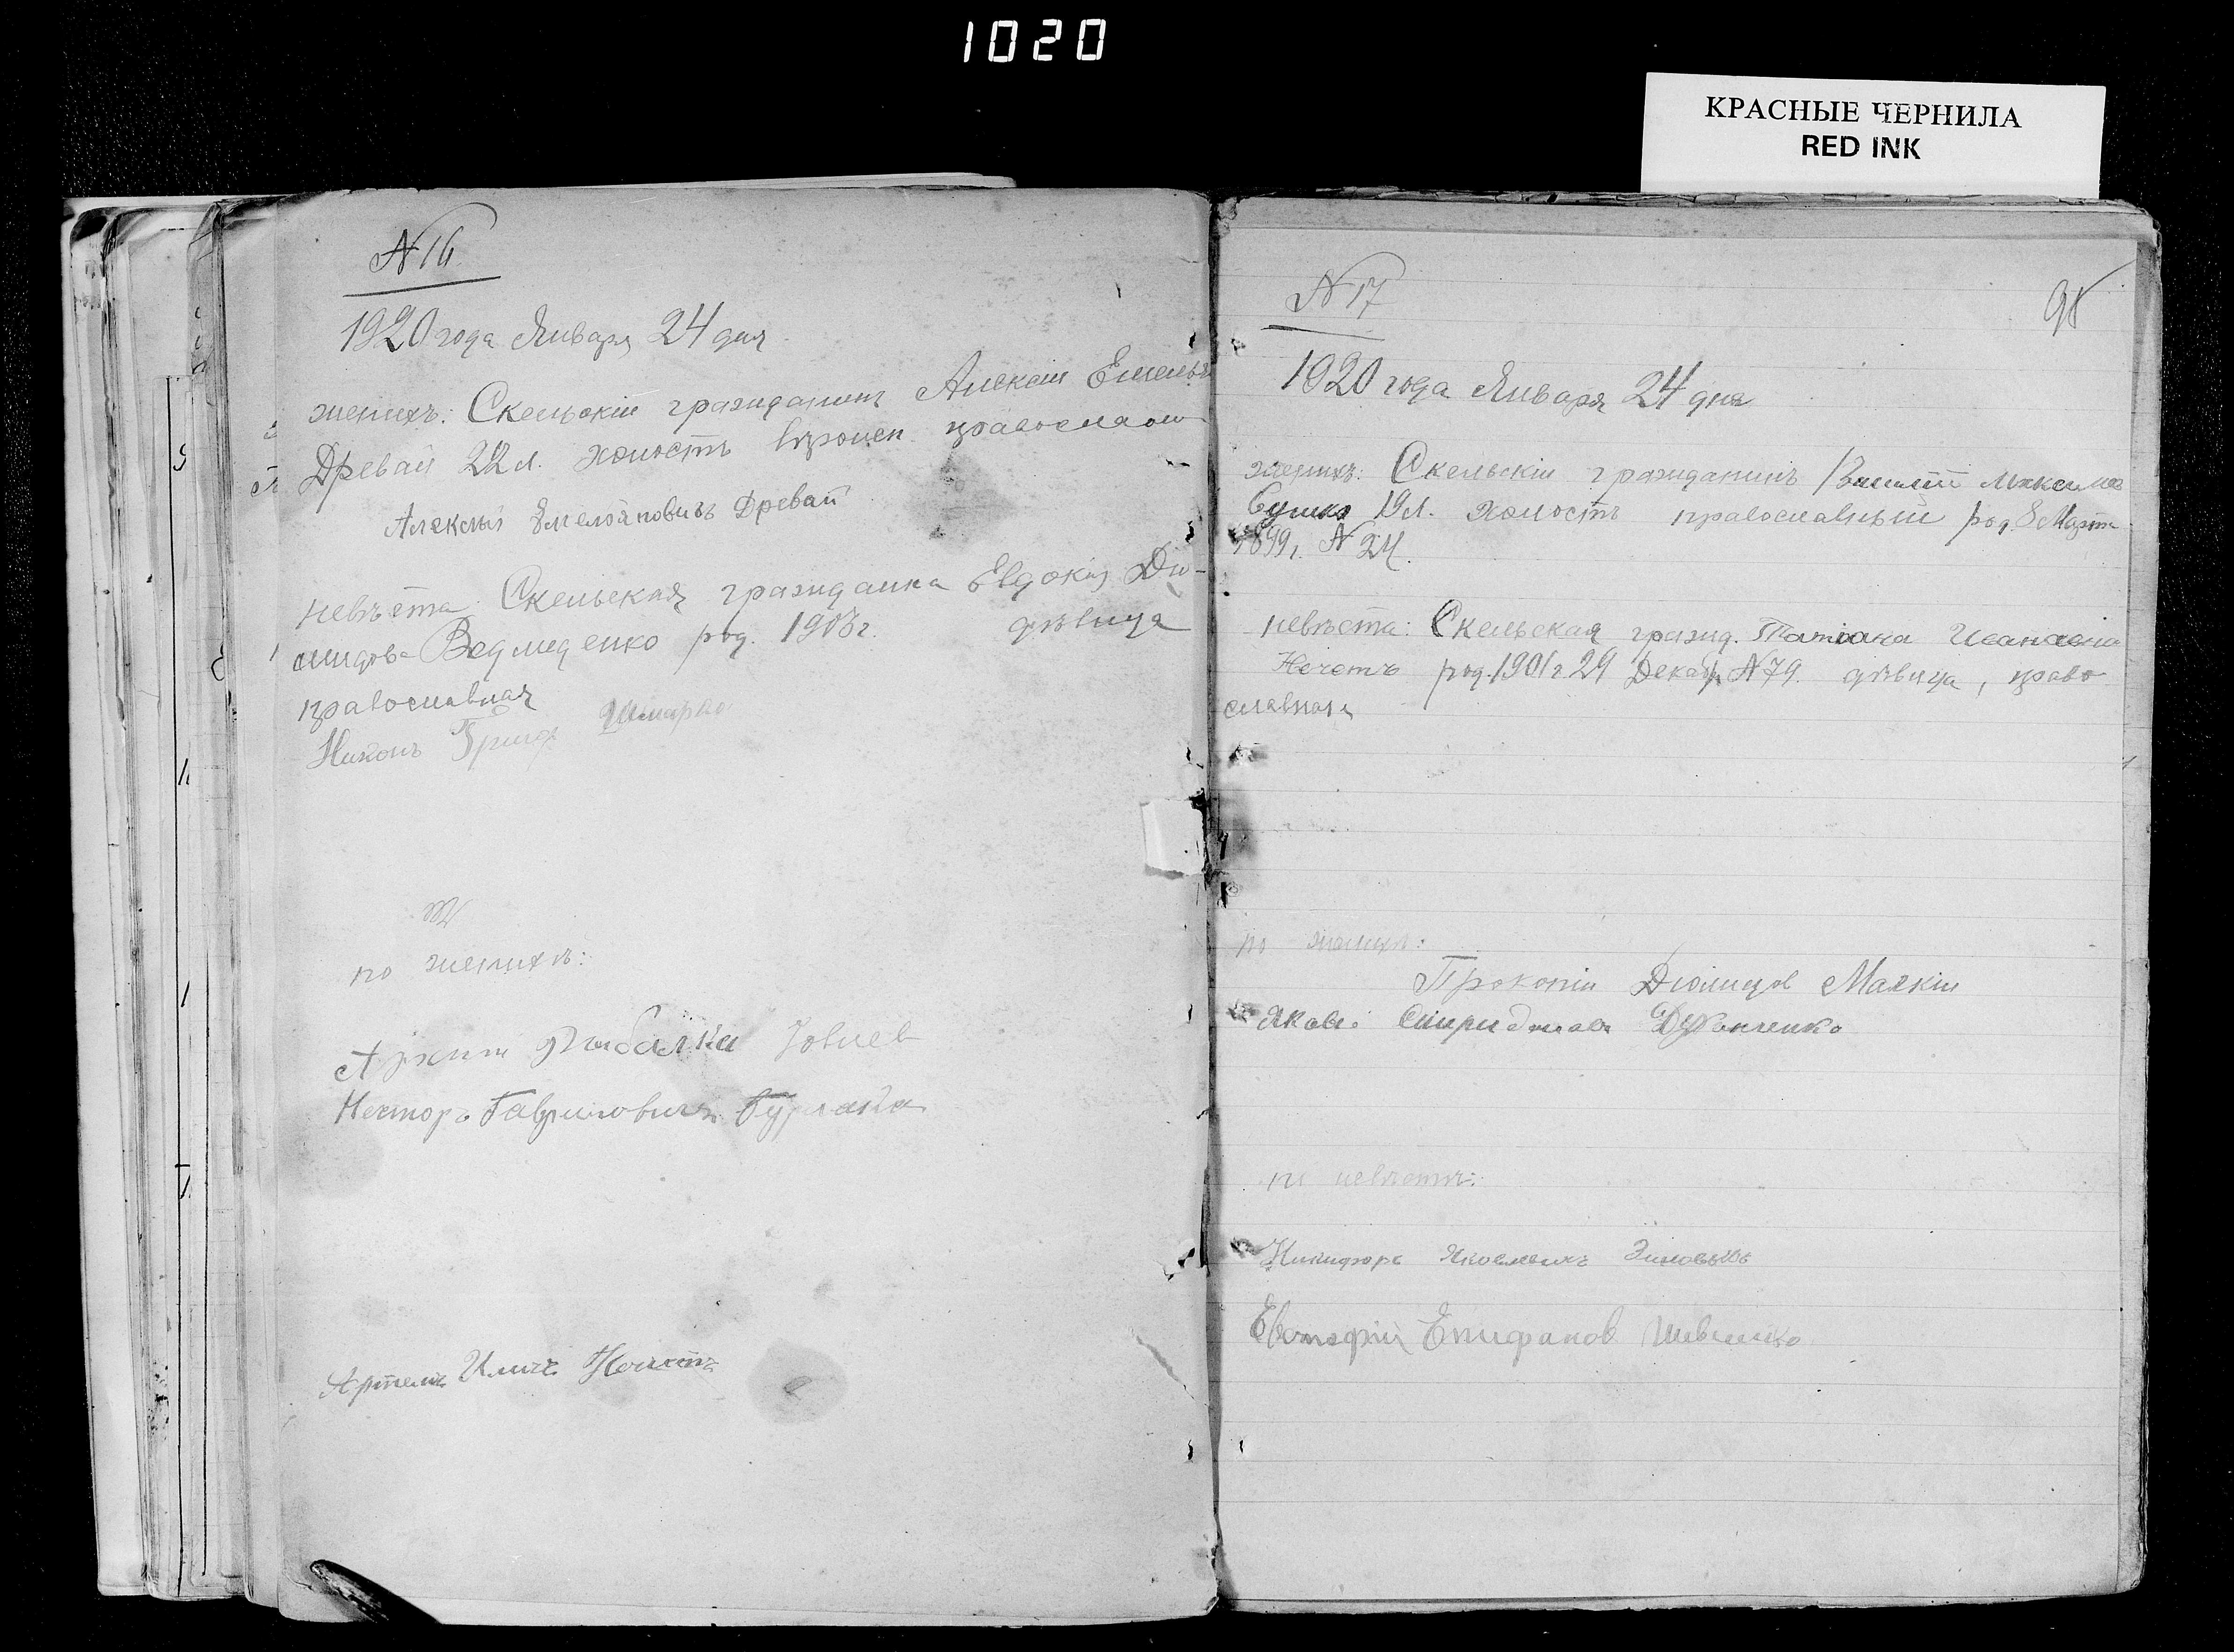 1020
КРАСНЫЕ ЧЕРНИЛА
RED INK
N 16
1920 года Января 24 дня
женихъ: Скельскій гражданинъ Алексій Емельян
Древай 22 л. холостъ православ
Алексѣй Емелояновичъ Древай
невѣста Скельская гражданка Евдокія Дио-
мидова Ведмеденко род. 1903 г. дѣвица
православная
Никонъ Григор
по женихѣ:
Архип Рыбалка
Несторъ Гавриловичъ Бурлака
Артемъ Иличъ Нечетъ
N 17
98
1920 года Января 24 дня
женихъ: Скельскій гражданинъ Василій Максимов
Сушко 19 л. холостъ православный род. 8 Марта
1899 г. N 24.
невѣста: Скельская гражд. Татіана Ивановна
Нечетъ род. 1901 г. 29 Декабр N 79. дѣвица, право
славная
по женихѣ:
Прокопій Діомидов Малкій
Яковъ Спиридонов
по невѣстѣ:
Никифоръ Яковлевичъ Зиновьевъ
Евстафій Епифанов Шевченко